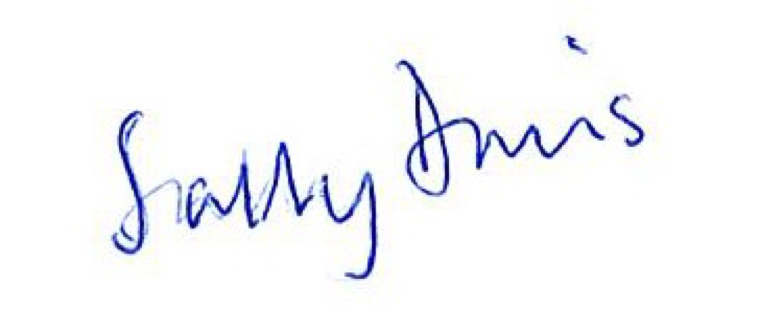 Sally Davis